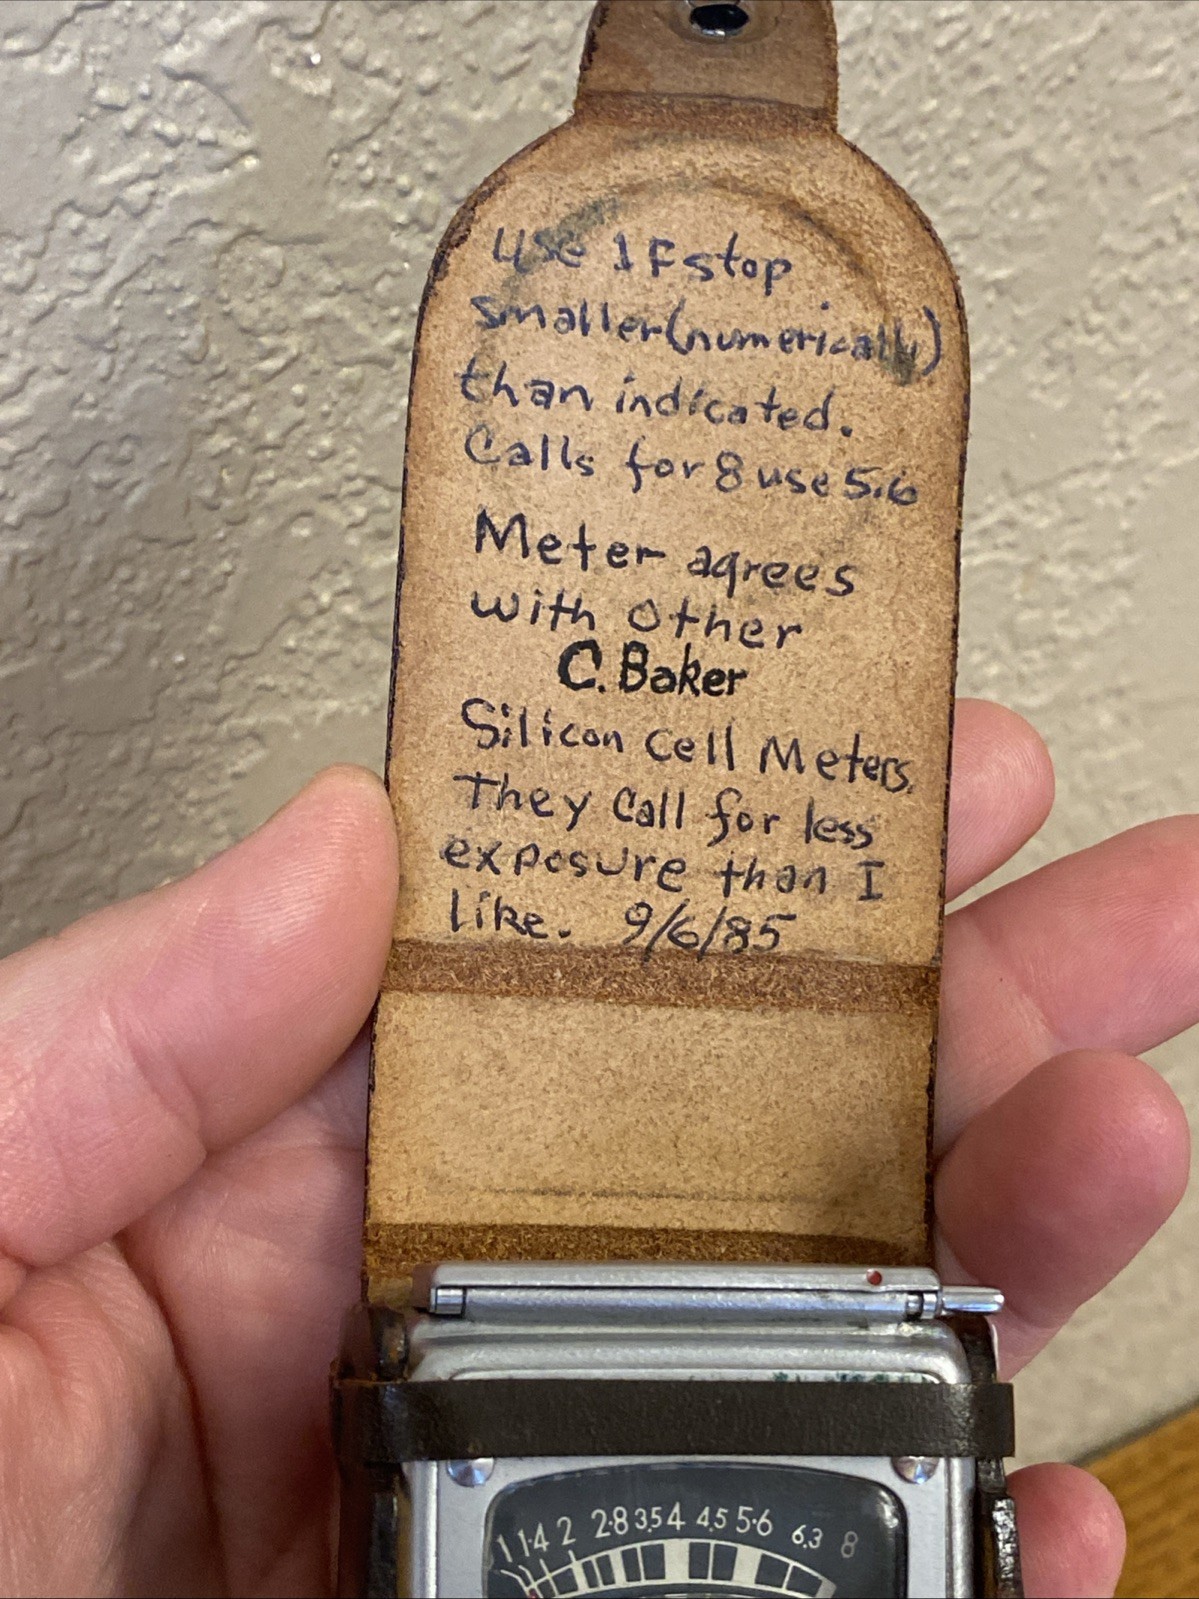 use 1 F stop
smaller (numerically)
than indicated.
Calls for 8 use 5.6
Meter agrees
with other
C. Baker
Silicon Cell Meters.
They Call for less
exposure than I
like. 9/6/85
1 1.4 2 2.8 3.5 4 4.5 5.6 6.3 8